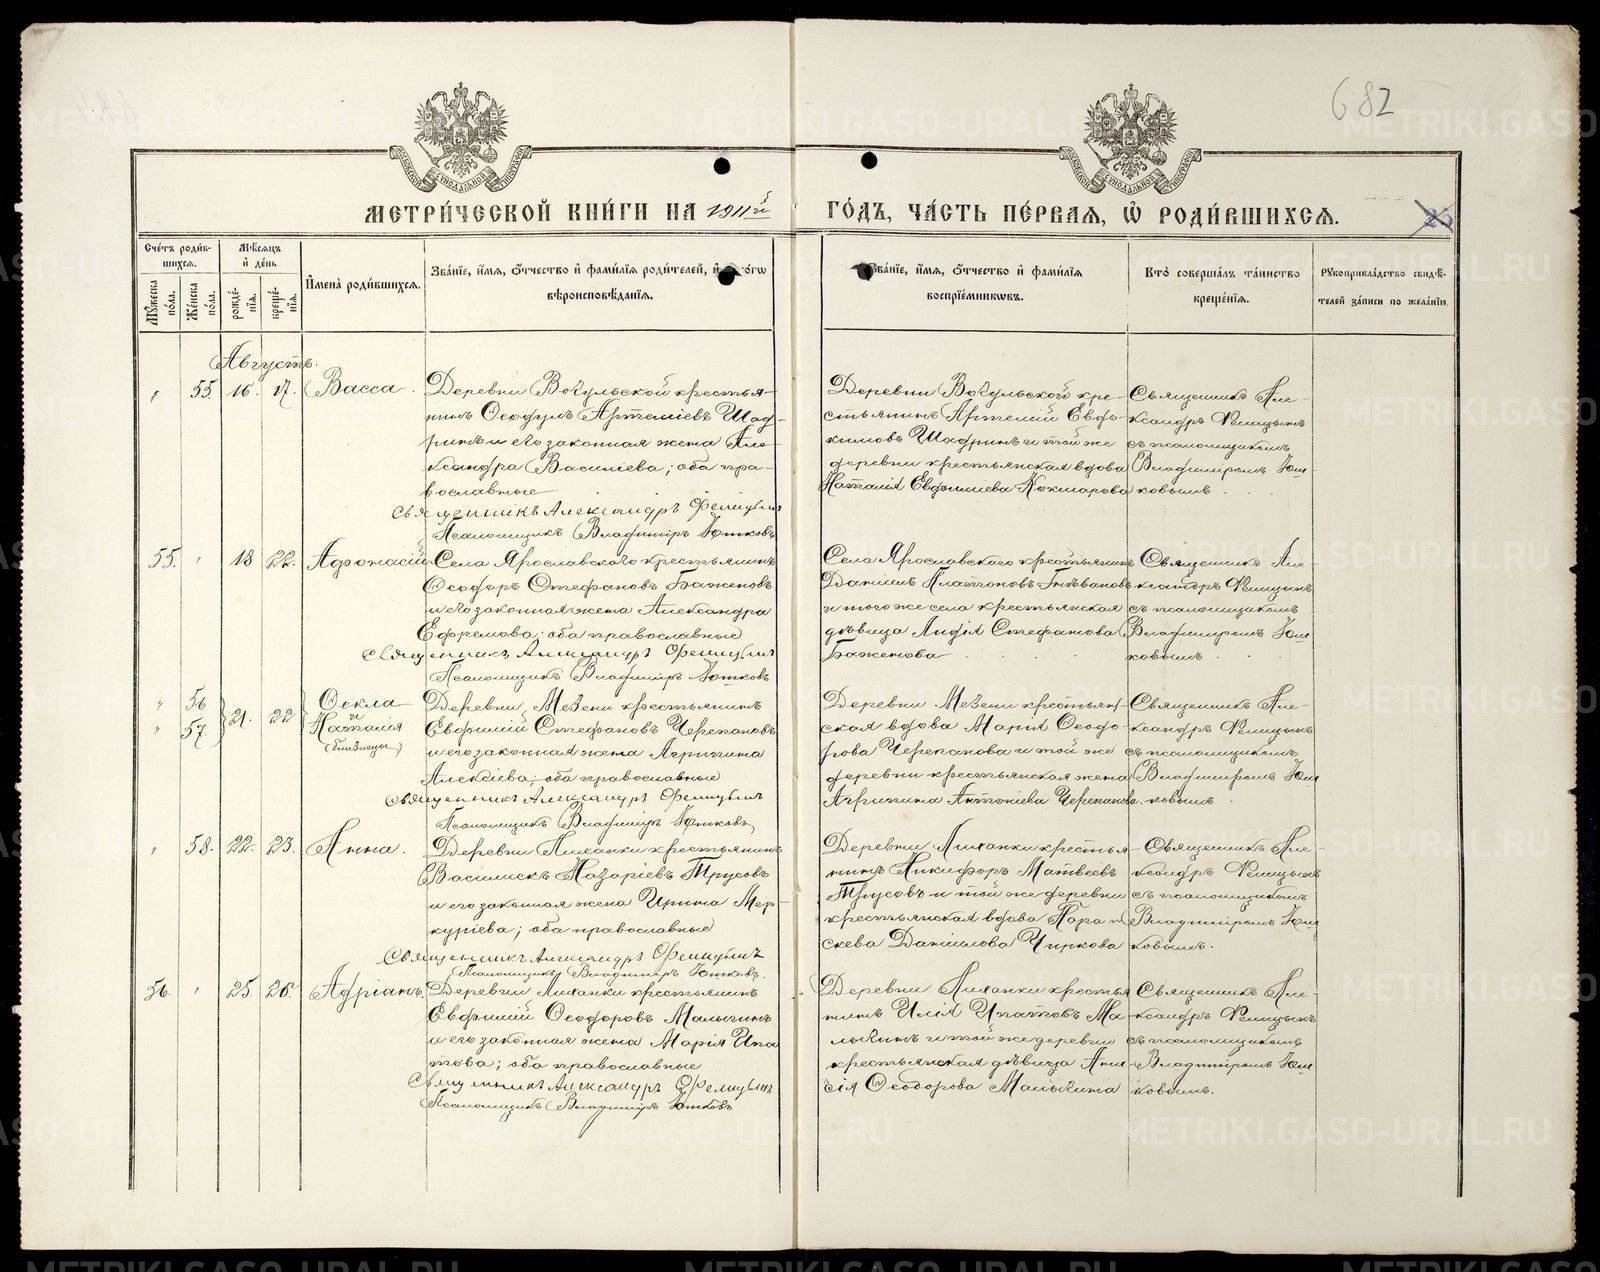 682
МОСКОВСКОЙ СѴНОДАЛЬНОЙ ТИПОГРАФІИ
МОСКОВСКОЙ СѴНОДАЛЬНОЙ ТИПОГРАФІИ
МЕТРИ́ЧЕСКОЙ КНИ́ГИ НА 1911й ГО́ДЪ, ЧА́СТЬ ПЕ́РВАѦ, Ѡ҆ РОДИ́ВШИХСѦ.
25
Сче́тъ роди́в-
шихсѧ.
Мѹжеска по́ла.
Же́нска по́ла.
Мѣ́сѧцъ
и҆ де́нь.
рожде́-
нїѧ.
креще́-
нїѧ.
И҆мена̀ роди́вшихсѧ.
Зва́нїе, и҆́мѧ, ѻ҆́тчество и҆ фами́лїѧ роди́телей, и҆
вѣроисповѣ́данїѧ.
Зва́нїе, и҆́мѧ, ѻ҆́тчество и҆ фами́лїѧ
воспрїе́мникѡвъ.
Кто̀ соверша́лъ та́инство
креще́нїѧ.
Рѹкоприкла́дство свидѣ́-
телей за́писи по жела́нїю.
Августъ.
" 55. 16. 17. Васса.
Деревни Вогульской крестья-
нинъ Ѳеодулъ Артеміевъ Шад-
ринъ и его законная жена Але-
ксандра Василіева; оба пра-
вославные
Священникъ Александръ Фелицынъ
Псаломщикъ Владиміръ Ютковъ
Деревни Вогульской кре-
стьянинъ Артемій Евдо-
кимовъ Шадринъ и той же
деревни крестьянская вдова
Наталія Евфимиева Кокшарова
Священникъ Але-
ксандръ Фелицынъ
съ псаломщикомъ
Владиміромъ Ют-
ковымъ.
55. " 18 22. Афонасій
Села Ярославскаго крестьянинъ
Ѳеодоръ Стефановъ Баженовъ
и его законная жена Александра
Ефремова; оба православные
Священникъ Александръ Фелицынъ
Псаломщикъ Владиміръ Ютковъ
Села Ярославскаго крестьянинъ
Даніилъ Платоновъ
и того же села крестьянская
дѣвица Лидія Стефанова
Баженова
Священникъ Але-
ксандръ Фелицынъ
съ псаломщикомъ
Владиміромъ Ют-
ковымъ.
" 56
" 57. 21. 22 Ѳекла
и
Наталія
(близнецы)
Деревни Мезени крестьянинъ
Евфимій Стефановъ Черепановъ
и его законная жена Агрипина
Алексіева; оба православные
Священникъ Александръ Фелицынъ
Псаломщикъ Владиміръ Ютковъ
Деревни Мезени крестьян-
ская вдова Марія Ѳеодо-
рова Черепанова и той же
деревни крестьянская жена
Агрипина Антоніева Черепанова.
Священникъ Але-
ксандръ Фелицынъ
съ псаломщикомъ
Владиміромъ Ют
ковымъ.
" 58. 22. 23. Анна.
Деревни Лиханки крестьянинъ
Василискъ Назаріевъ Трусовъ
и его законная жена Ирина Мер-
куріева; оба православные
Священникъ Александръ Фелицынъ
Псаломщикъ Владиміръ Ютковъ.
Деревни Лиханки крестья-
нинъ Никифоръ Матвеевъ
Трусовъ и той же деревни
крестьянская вдова Пара
скева Даніилова Чиркова
Священникъ Але-
ксандръ Фелицынъ
съ псаломщикомъ
Владиміромъ Ют
ковымъ.
56. " 25. 26. Адріанъ.
Деревни Лиханки крестьянинъ
Евфимій Ѳеодоровъ Малыгинъ
и его законная жена Марія Ипа
това; оба православные
Священникъ Александръ Фелицынъ
Псаломщикъ Владиміръ Ютковъ
Деревни Лиханки крестья
нинъ Илія Ипатовъ Ма-
лыгинъ и той же деревни
крестьянская дѣвица Ани-
сія Ѳеодорова Малыгина
Священникъ Але-
ксандръ Фелицынъ
съ псаломщикомъ
Владиміромъ Ют
ковымъ.
METRIKI.GASO-URAL.RU